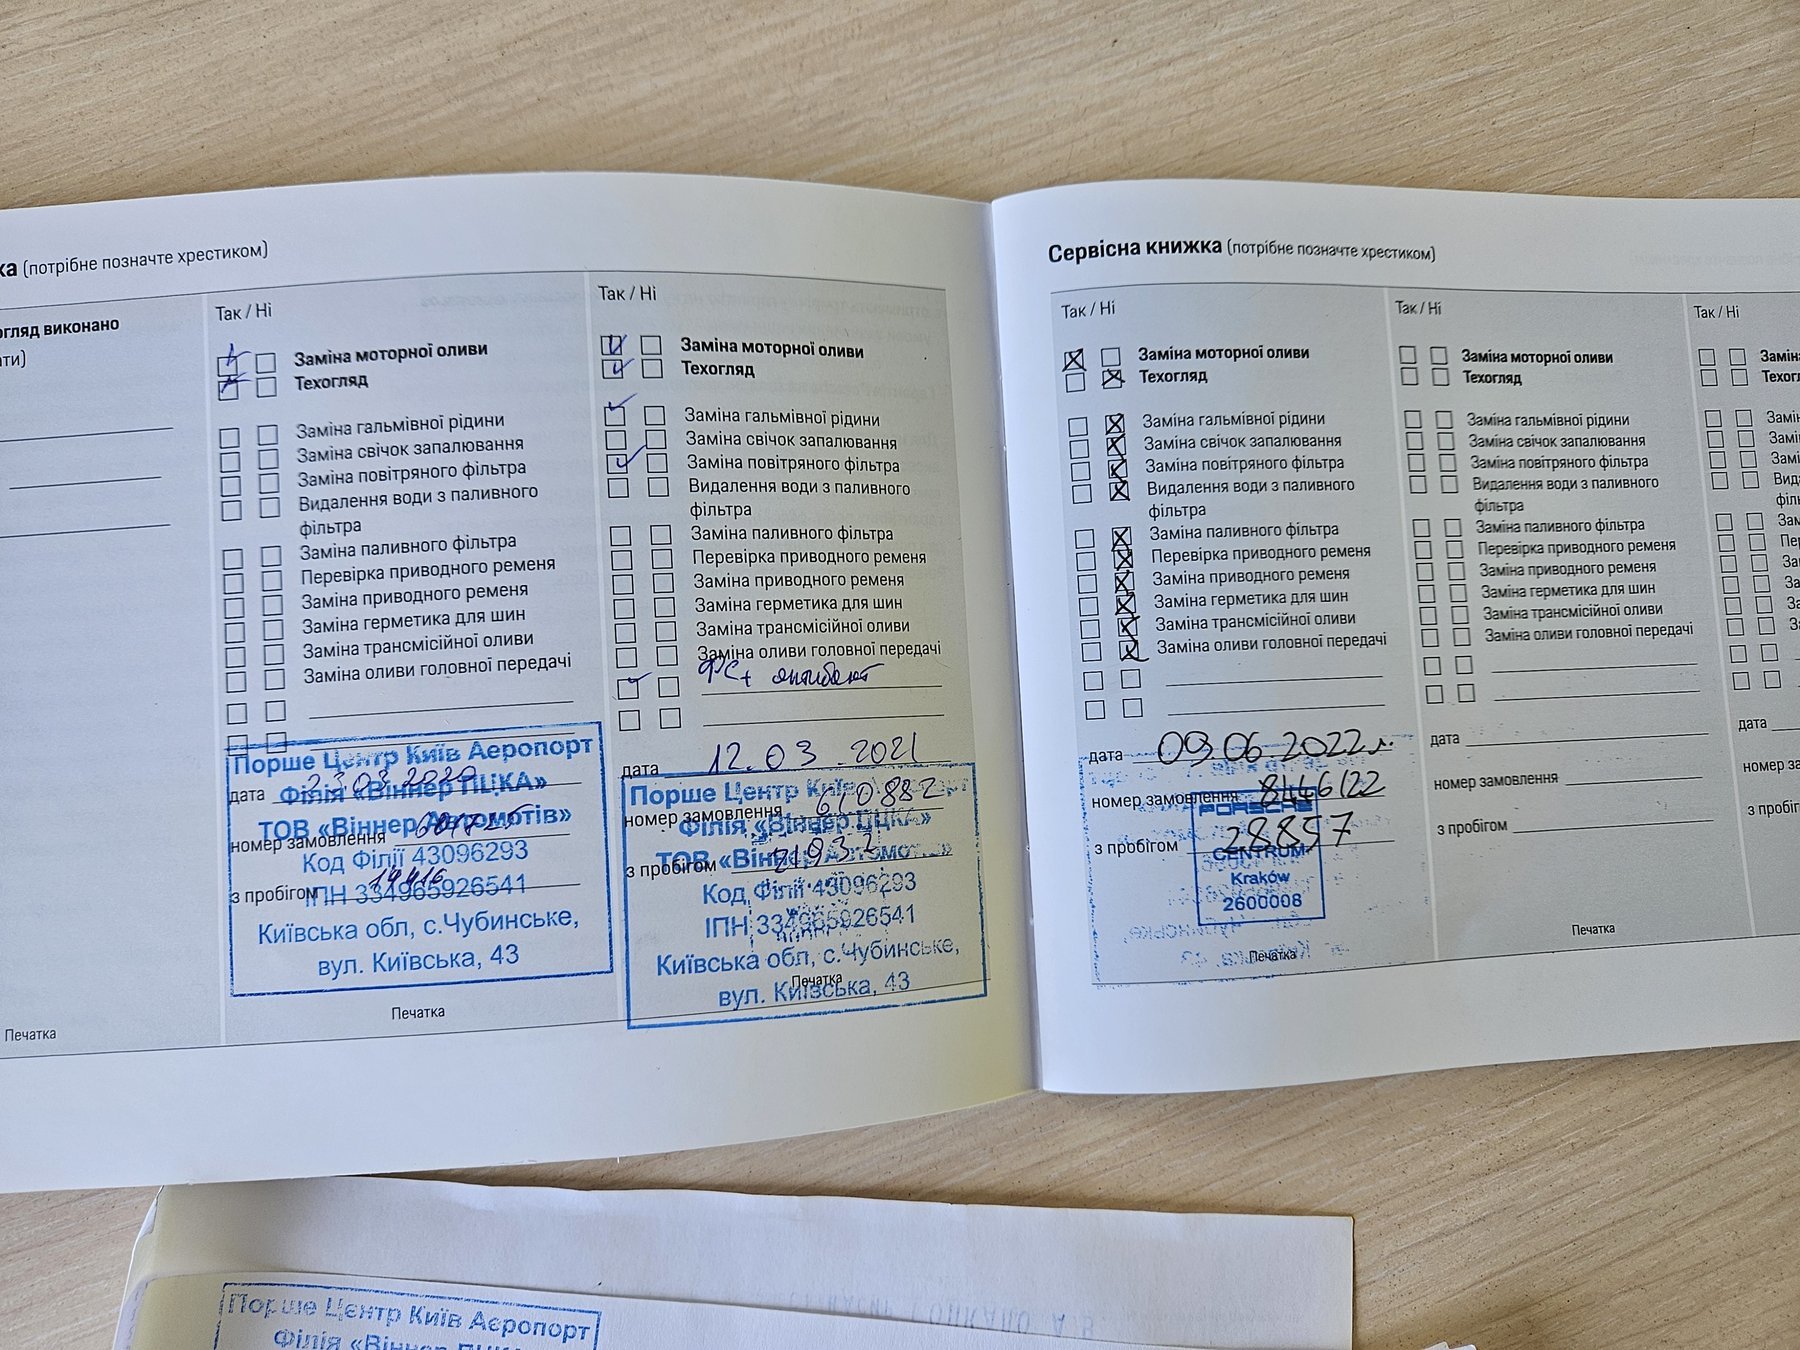 ка (потрібне позначте хрестиком)
огляд виконано
ати)
Печатка
Так / Ні
Заміна моторної оливи
Техогляд
Заміна гальмівної рідини
Заміна свічок запалювання
Заміна повітряного фільтра
Видалення води з паливного
фільтра
Заміна паливного фільтра
Перевірка приводного ременя
Заміна приводного ременя
Заміна герметика для шин
Заміна трансмісійної оливи
Заміна оливи головної передачі
Порше Центр Київ Аеропорт
дата 23.03.2020
Філія «Віннер ПЦКА»
ТОВ «Віннер Автомотів»
номер замовлення
Код Філії 43096293
з пробігом 14416
ІПН 334965926541
Київська обл, с.Чубинське,
вул. Київська, 43
Печатка
Так / Ні
Заміна моторної оливи
Техогляд
Заміна гальмівної рідини
Заміна свічок запалювання
Заміна повітряного фільтра
Видалення води з паливного
фільтра
Заміна паливного фільтра
Перевірка приводного ременя
Заміна приводного ременя
Заміна герметика для шин
Заміна трансмісійної оливи
Заміна оливи головної передачі
ФС+
дата 12.03.2021
Порше Центр Київ Аеропорт
номер замовлення 610882
Філія «Віннер ПЦКА»
ТОВ «Віннер Автомотів»
з пробігом 21932
Код Філії 43096293
ІПН 334965926541
Київська обл, с.Чубинське,
Печатка
вул. Київська, 43
Сервісна книжка (потрібне позначте хрестиком)
Так / Ні
Заміна моторної оливи
Техогляд
Заміна гальмівної рідини
Заміна свічок запалювання
Заміна повітряного фільтра
Видалення води з паливного
фільтра
Заміна паливного фільтра
Перевірка приводного ременя
Заміна приводного ременя
Заміна герметика для шин
Заміна трансмісійної оливи
Заміна оливи головної передачі
дата 09.06.2022г.
номер замовлення 8446/22
PORSCHE
з пробігом 28857
CENTRUM
Kraków
2600008
Печатка
Так / Ні
Заміна моторної оливи
Техогляд
Заміна гальмівної рідини
Заміна свічок запалювання
Заміна повітряного фільтра
Видалення води з паливного
фільтра
Заміна паливного фільтра
Перевірка приводного ременя
Заміна приводного ременя
Заміна герметика для шин
Заміна трансмісійної оливи
Заміна оливи головної передачі
дата
номер замовлення
з пробігом
Печатка
Так / Ні
дата
номер за
з пробіг
Порше Центр Київ Аеропорт
Філія «Віннер ПЦКА»